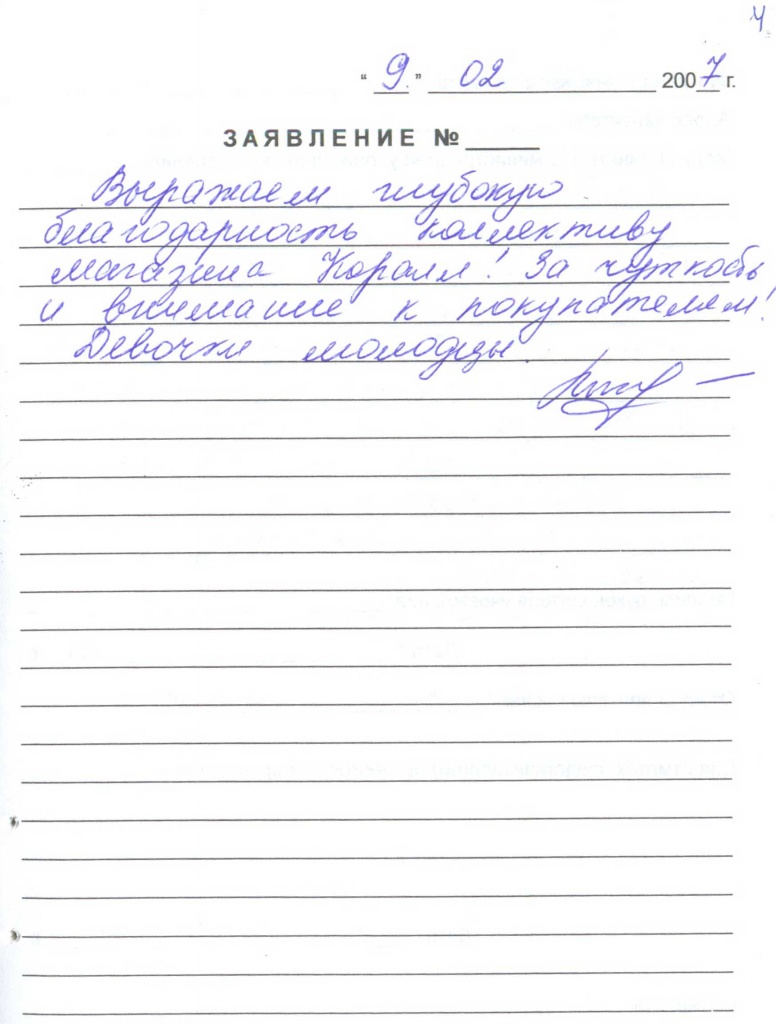 4
" 9. " 02 2007 г.
ЗАЯВЛЕНИЕ № ______
Выражаем глубокую
благодарность коллективу
магазина Коралл! За чуткость
и внимание к покупателям!
Девочки молодцы.